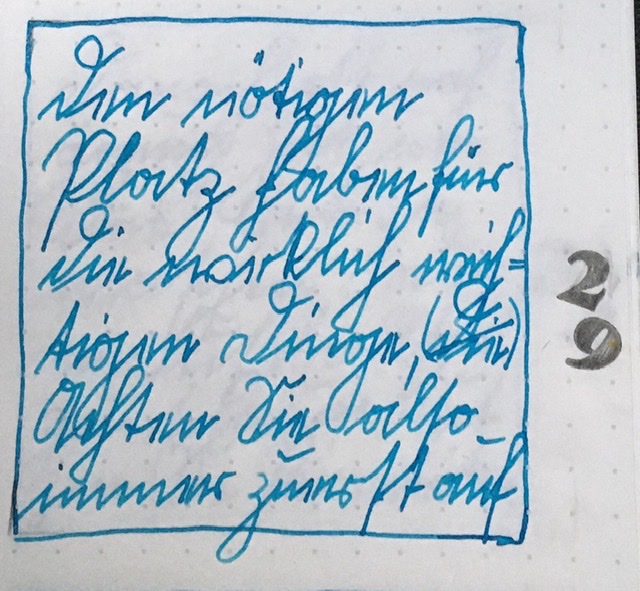 den nötigen
Platz haben für
die wirklich wich=
tigen Dinge, (die)
Achten Sie also
immer zuerst auf
29